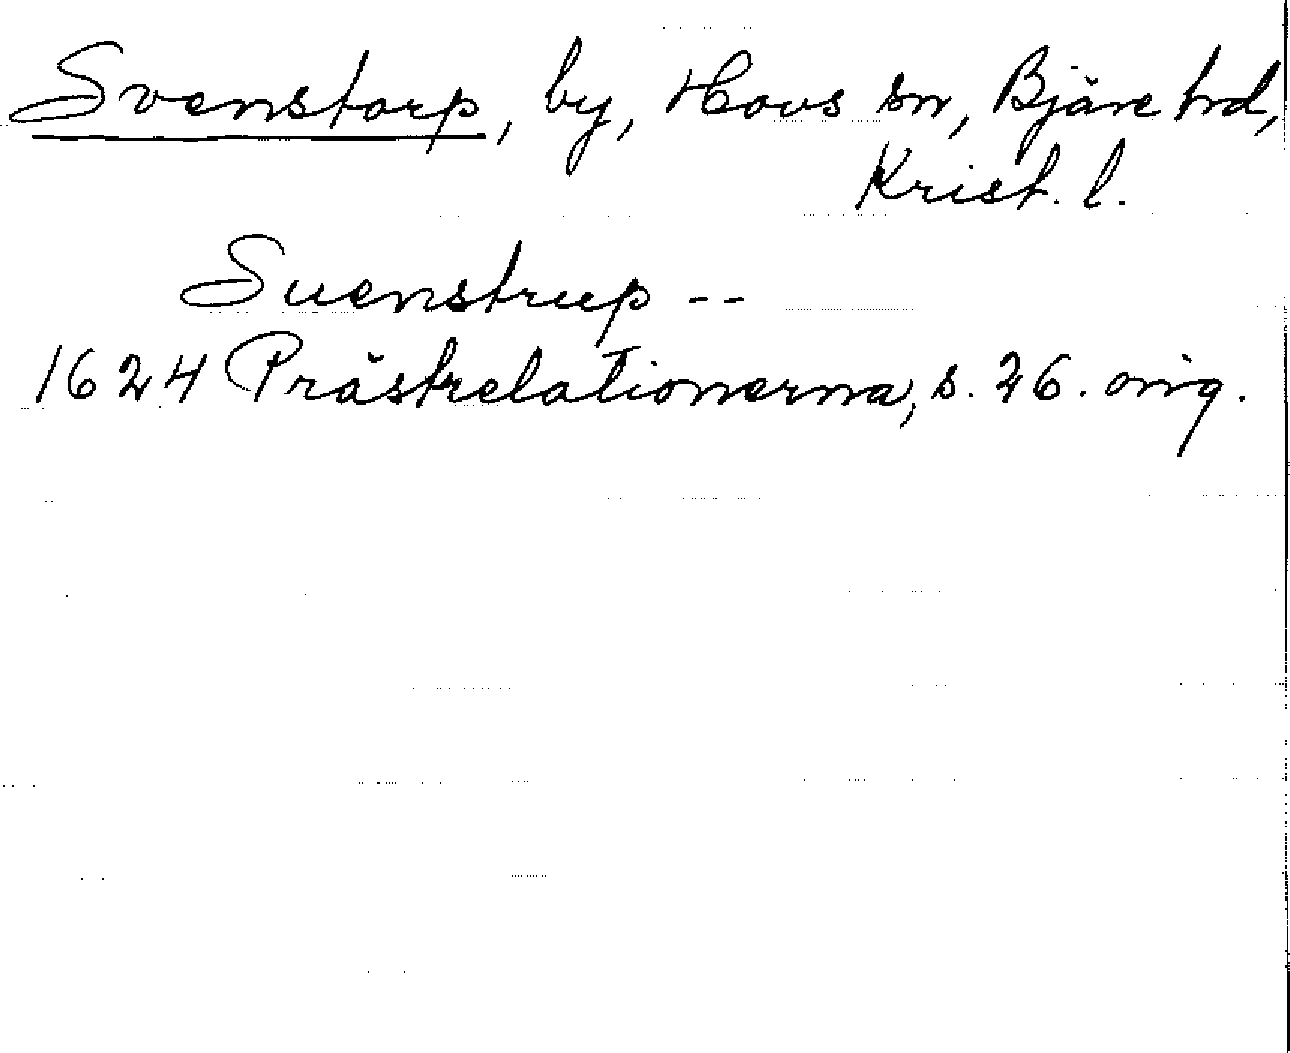 Svenstorp, by, Hovs sn, Bjäre hd,
Krist. l.
Suenstrup --
1624 Prästrelationerna, s. 26. orig.